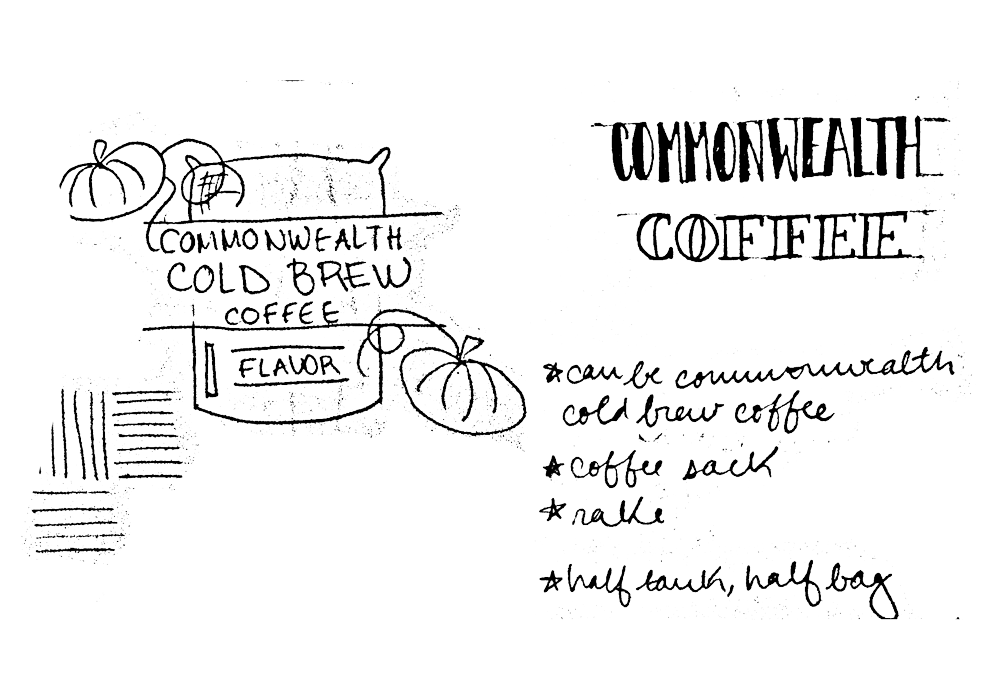 COMMONWEALTH
COLD BREW
COFFEE
FLAVOR
COMMONWEALTH
COFFEE
*can be commonwealth
cold brew coffee
*coffee sack
*rake
*half tank, half bag